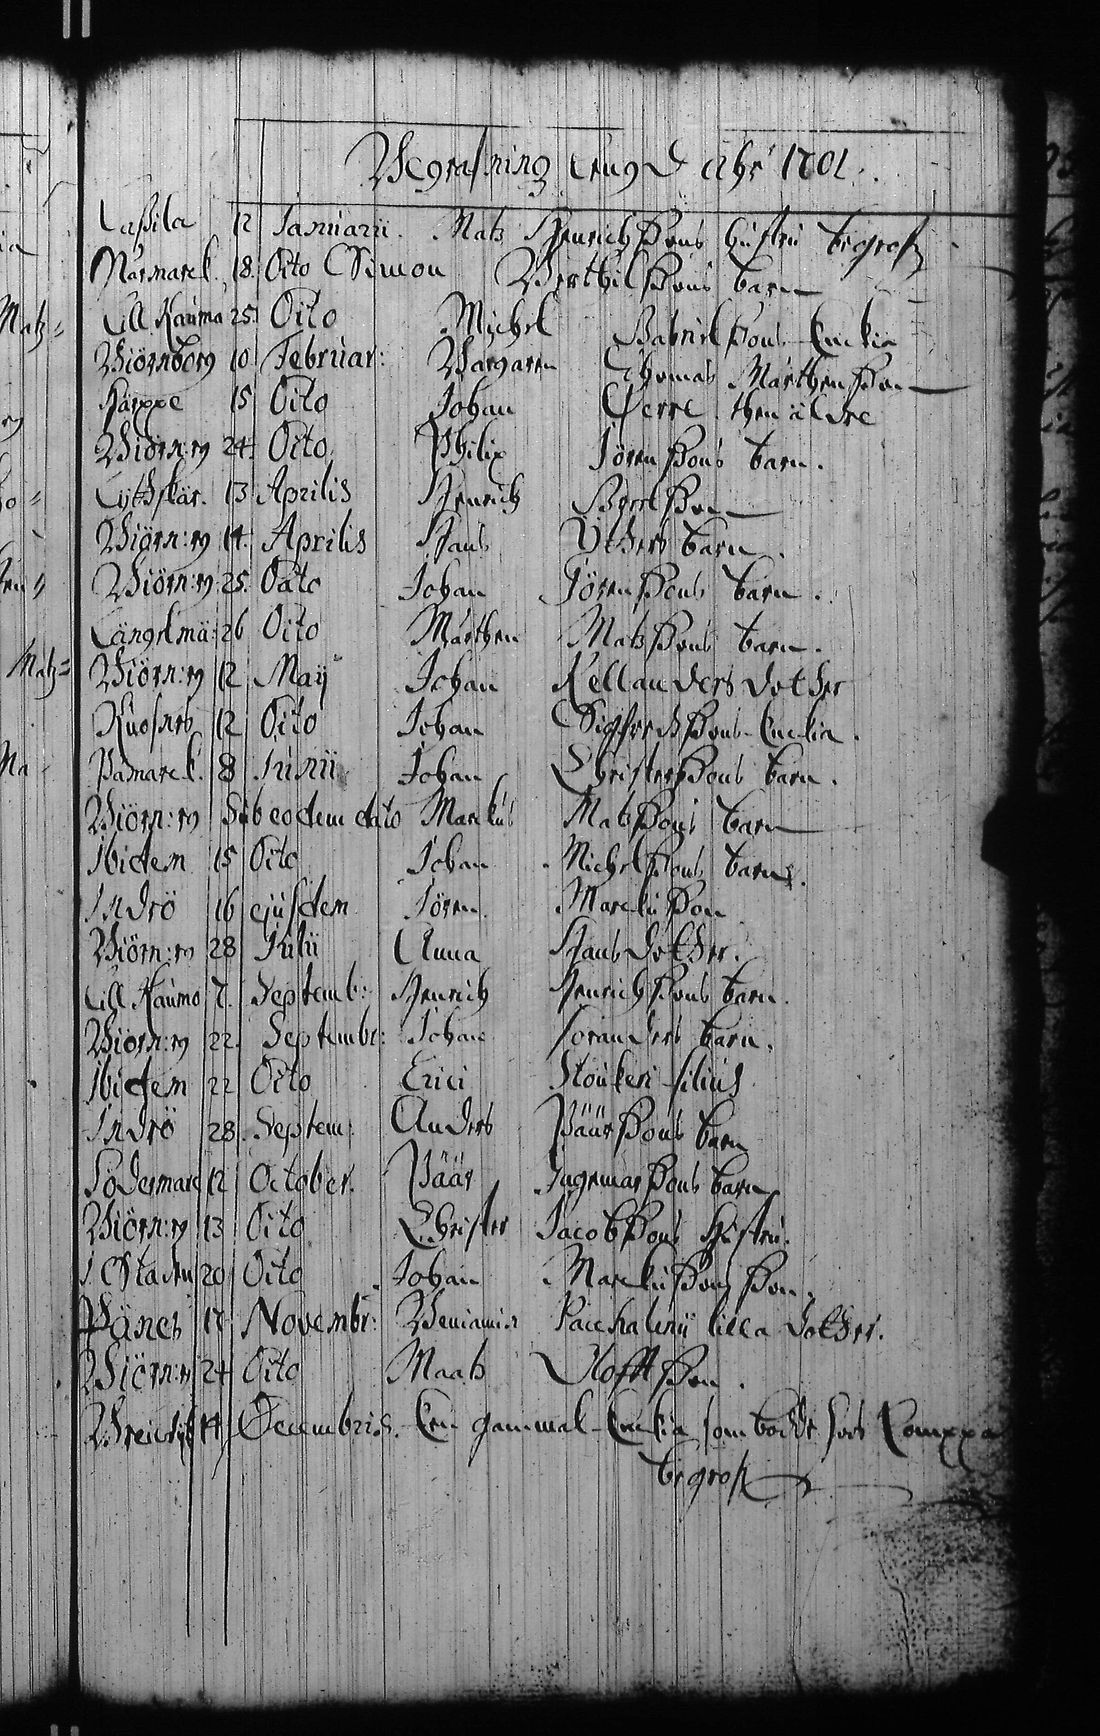 Begrafning Längd åhr 1701.
Laßila 12 Januarii. Mats Henrichßons hustru begrofz
Närmarck 18. Dito Simon Berthilßons barn
Lill Raumo 25 Dito Michel Gabrielßons Enckia
Biörnborg 10 Februar: Margareta Thomas Mårthenßon
Räxpe 15 Dito Johan Perre then äldre
Biörn:rg 24. Dito. Philip Jörenßons barn.
Lythskär. 13 Aprilis Henrich
Biörn:rg 14. Aprilis Hans barn.
Biörn:rg 25. Dato Johan Jörenßons barn.
Längelmä: 26 Dito Mårthen Matsßons barn.
Biörn:rg 12 Maij Johan Kellanders dother
Ruosnes 12 Dito Johan Sigfredßons Enckia.
Påmarck. 8 Junii Johan Christersßons barn.
Biörn:rg Sub eodem dato Markus Matsßons barn
Ibidem 15 Dito Johan Michelßons barn.
Indrö 16 ejusdem Jören Marckusßon
Biörn:rg 28 Julii Anna Hansdother.
Lill Raumo 7. Septemb: Henrich Henrichßons barn.
Biörn:rg 22. Septembr: Johan Foranders barn.
Ibidem 22 Dito Erici filius
Indrö 28. Septem: Anders Päärßons barn
Södermarc 12 October. Päär Ingemarßons barn
Biörn:rg 13 Dito Christer Jacobßons hustru.
I Staden 20 Dito Johan Marckusßons ßon.
Pänes 17 Novembr: Beniamin Paschalenii lilla dother.
Biörn:rg 24 Dito Mats Olofßon.
14 Decembris. Een gammal Enckia som bodde hoos
begrofz